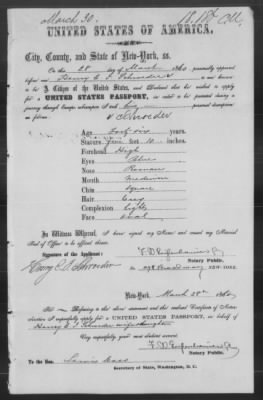 March 30.
UNITED STATES OF AMERICA.
City, County, and State of New-York, ss.
On the 28 day of March 1860 personally appeared
before me Henry C. F. Schroeder to me known
to be A Citizen of the United States, and Declared that he wished to apply
for a UNITED STATES PASSPORT, he is about to be protected during a
journey through Europe whereupon I took his personal description
as follows:
Schroeder
Age Forty six years.
Stature five feet 10 inches.
Forehead High
Eyes Blue
Nose Roman
Mouth medium
Chin square
Hair
Complexion light
Face oval
In Witness Whereof, I Have signed my Name and caused my Notarial
Seal of Office to be affixed thereto.
Signature of the Applicant:
Notary Public.
Broadway NEW-YORK.
New-York, March 28th 1860
Sir Referring to the above statement and this united Certificate of Natu-
ralization I respectfully apply for a UNITED STATES PASSPORT, in behalf of
Henry C. F. Schroeder wife & daughter
Very respectfully your most obedient servant
Notary Public.
To the Hon. Lewis Cass
Secretary of State, Washington, D. C.